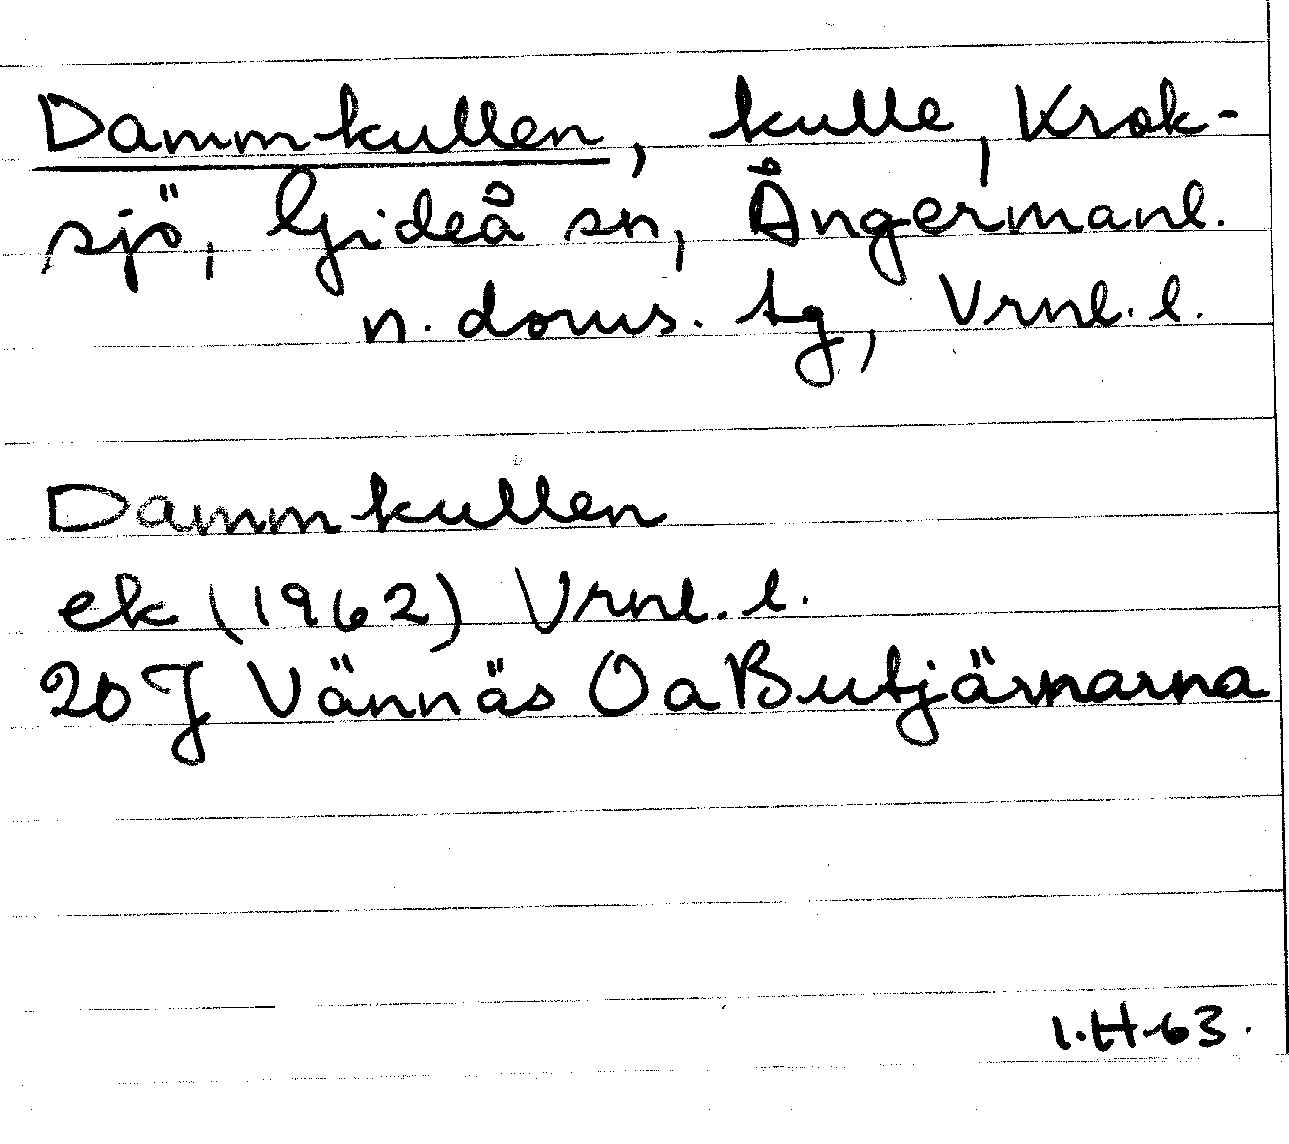 Dammkullen, kulle, Krok-
sjö, Gideå sn, Ångermanl.
n. doms. tg, Vrnl. l.
Dammkullen
ek (1962) Vrnl. l.
20 J Vännäs O a Butjärnarna
I.H-63.